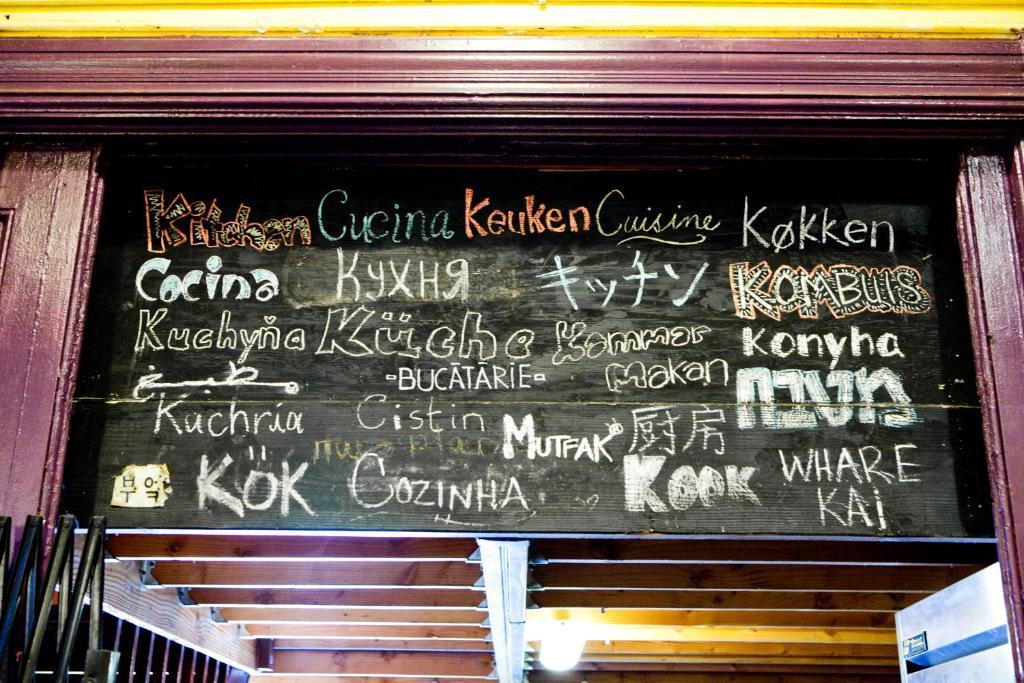 Kitchen Cucina Keuken Cuisine Køkken
Cocina Кухня キッチン KOMBUIS
Kuchyňa Küche Kammar Makan Konyha
مطبخ -BUCĂTĂRIE- מטבח
Kuchria Cistin MUTFAK 厨房
부엌 KÖK COZINHA KOOK WHARE KAI